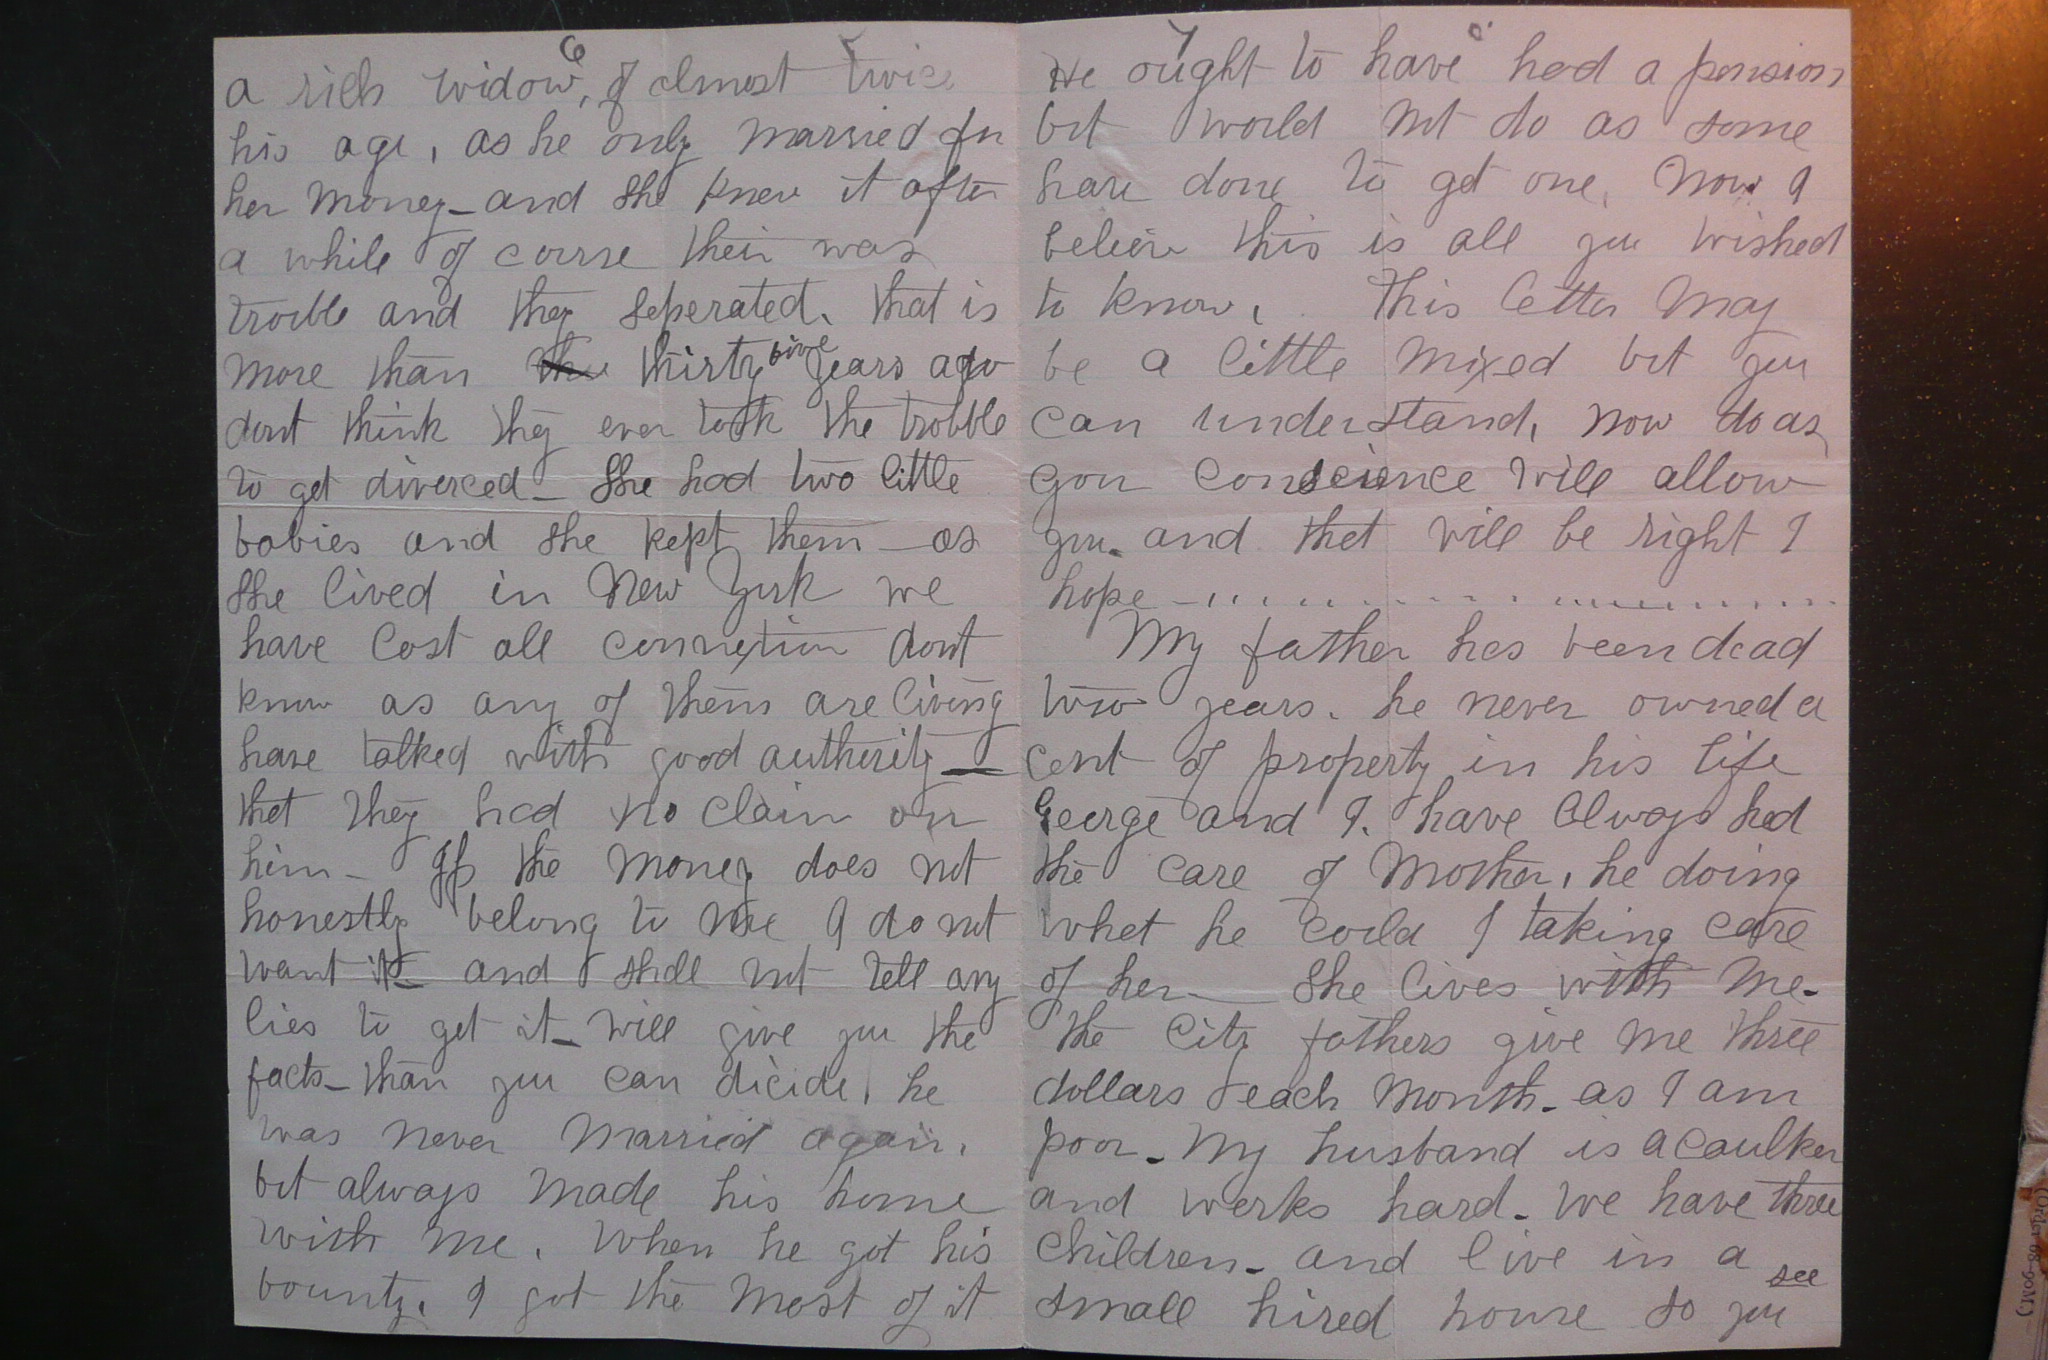 6
a rich widow, of almost twice
his age, as he only married for
her money - and she knew it after
a while of course their was
trouble and they seperated. that is
more than thirty five years ago
dont think they ever took the trobble
to get diverced - She had two little
babies and she kept them - as
she lived in New York we
have lost all connextion dont
know as any of them are living
have talked with good authority -
that they had no claim on
him - If the money does not
honestly belong to me I do not
want it - and shall not tell any
lies to get it - Will give you the
facts - than you can dicide, he
was never married again,
but always made his home
with me. When he got his
bounty. I got the most of it
7
He ought to have had a pension
but would not do as some
have done to get one. Now I
believe this is all you wished
to know. This letter may
be a little mixed but you
can understand, now do as
your conscience will allow
you - and that will be right I
hope - . . . . . . . . . . . . . . . . . . . .
My father has been dead
two years. he never owned a
cent of property in his life
George and I. have always had
the care of Mother, he doing
what he could I taking care
of her - She lives with me -
the City fathers give me three
dollars each month - as I am
poor - My husband is a caulker
and works hard - We have three
children - and live in a
small hired house so you see
(Order 08-90M)